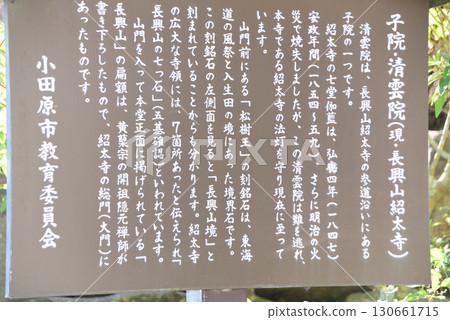 子院・清雲院(現・長興山紹太寺)
清雲院は、長興山紹太寺の参道沿いにある
子院の一つです。
紹太寺の七堂伽藍は、弘化四年(一八四七)
安政年間(一八五四~五九)、さらに明治の火
災で焼失しましたが、この清雲院は難を逃れ、
本寺である紹太寺の法灯を守り現在に至って
います。
山門前にある「松樹王」の刻銘石は、東海
道の風祭と入生田の境にあった境界石です。
この刻銘石の左側面を見ると「長興山境」と
刻まれていることからも分かります。紹太寺
の広大な寺領には、7箇所あったと伝えられ「
長興山の七つ石」(五基確認)といわれています。
山門を入って本堂正面に掲げられている「
長興山」の扁額は、黄檗宗の開祖隠元禅師が
書き下ろしたもので、紹太寺の総門(大門)に
あったものです。
小田原市教育委員会
130661715